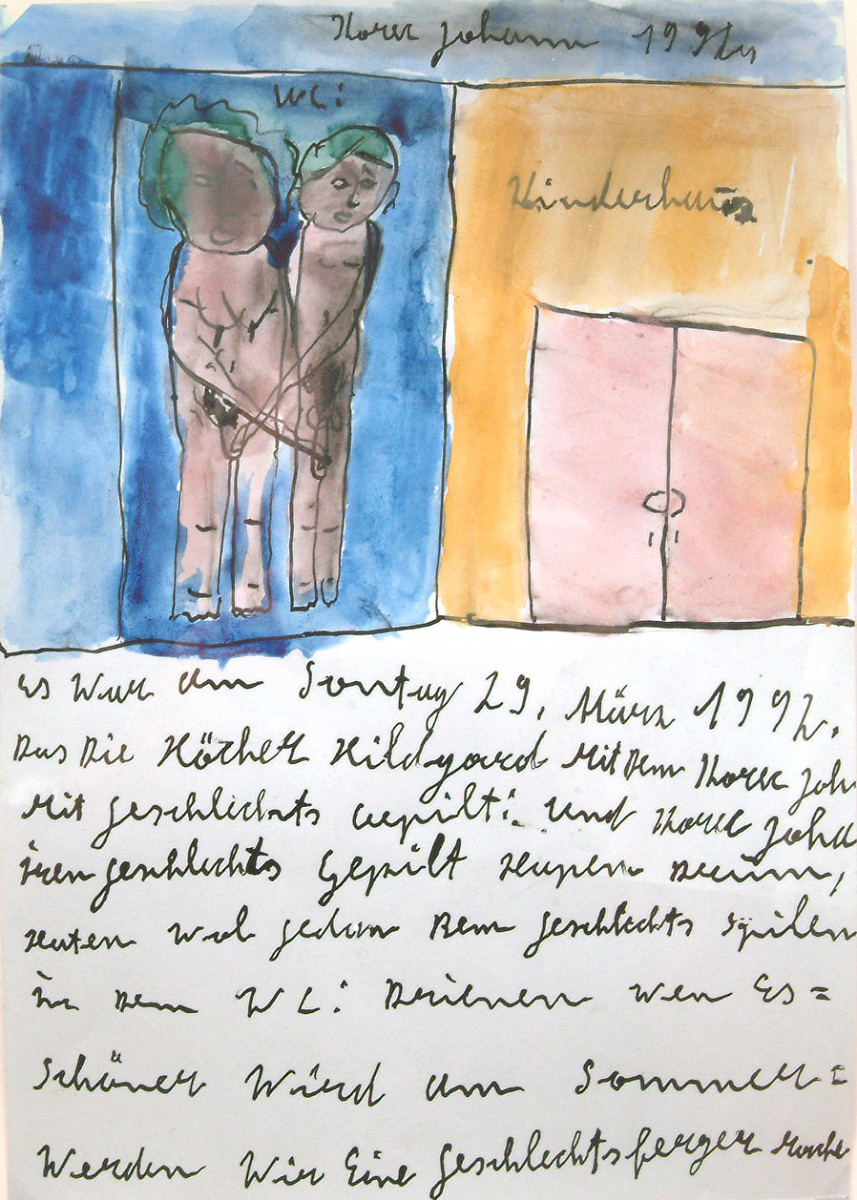 Korec Johann 1992
WC:
Kinderhaus
Es War am Sontag 29, März 1992.
Das Die Höcher Hildgard Mit Dem Korec Joh
Mit geschlechts gepilt: und Korec Joha
iren geschlechts Gepilt Hapen Darum,
Haten wol jeden Dem geschlechts Spilen
in Dem WC: Drienen wen Es =
Schöner Wird am Sommer =
Werden Wir Eine geschlechtsferger Mache